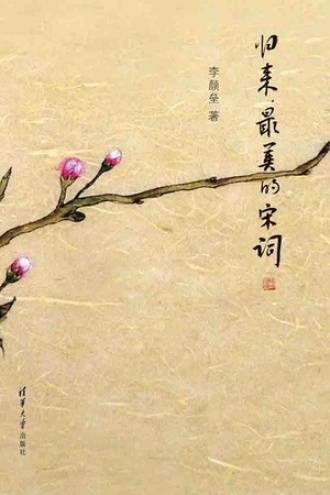 归来·最美的宋词
李颜垒 著
清华大学出版社